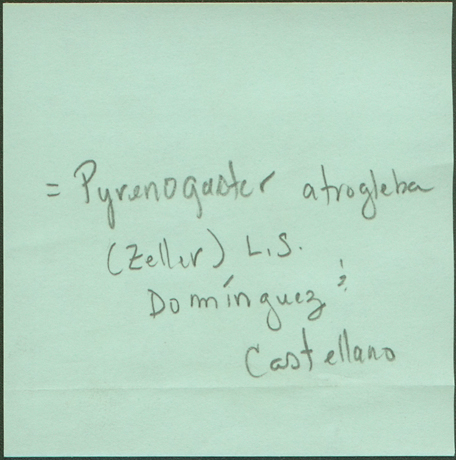 = Pyrenogaster atrogleba
(Zeller) L.S.
Domínguez &
Castellano